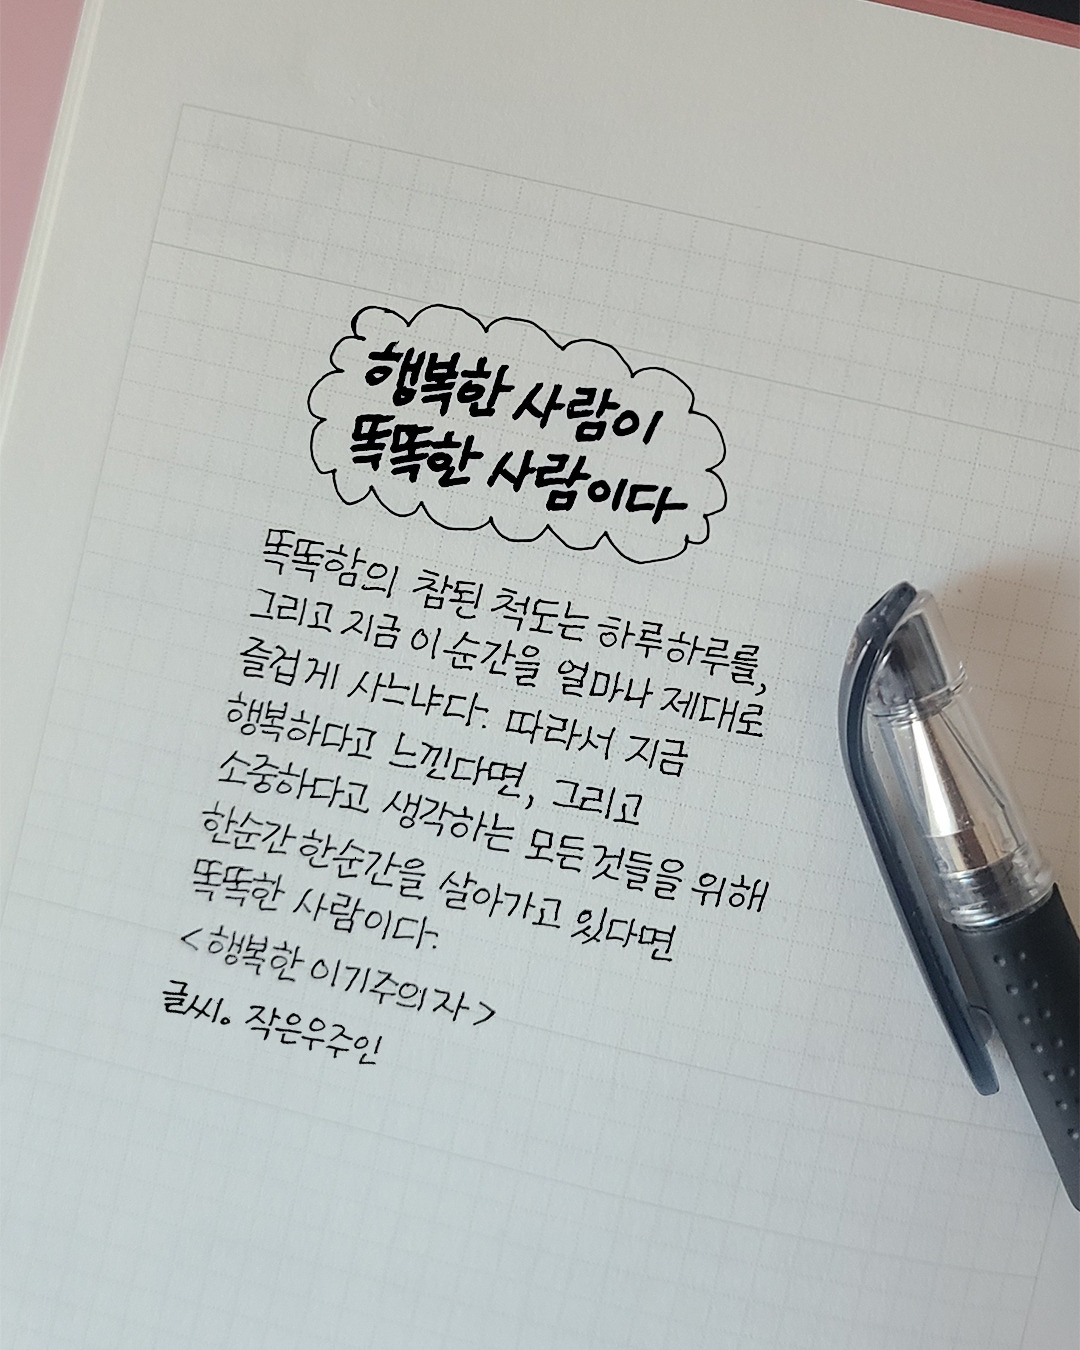 행복한 사람이
똑똑한 사람이다
똑똑함의 참된 척도는 하루하루를,
그리고 지금 이 순간을 얼마나 제대로
즐겁게 사느냐다. 따라서 지금
행복하다고 느낀다면, 그리고
소중하다고 생각하는 모든것들을 위해
한순간 한순간을 살아가고 있다면
똑똑한 사람이다.
<행복한 이기주의자>
글씨. 작은우주인